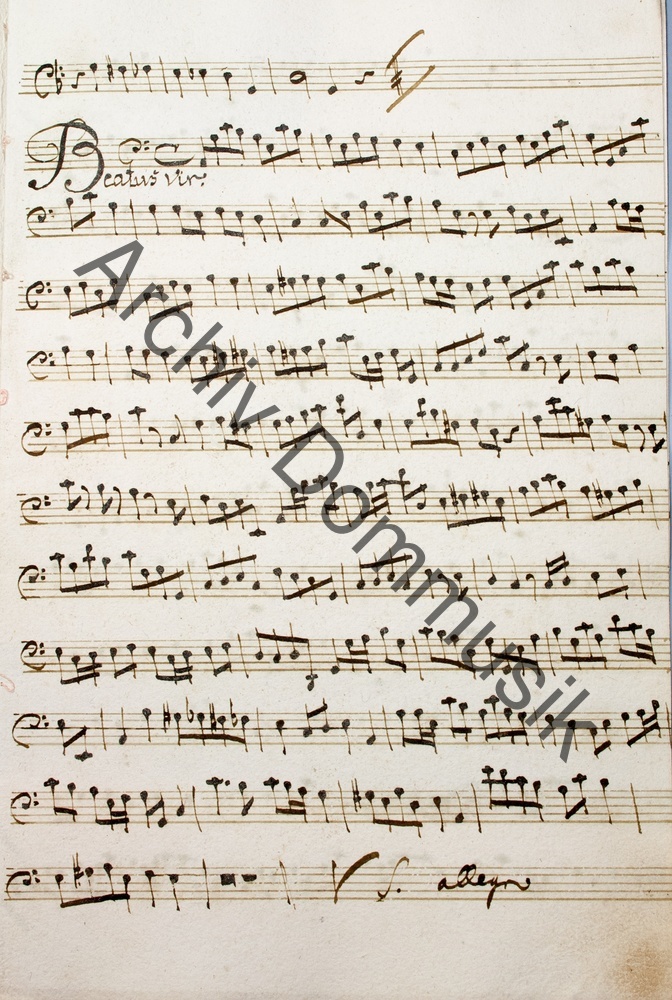 Beatus vir:
Archiv Dommusik
V S. allegro